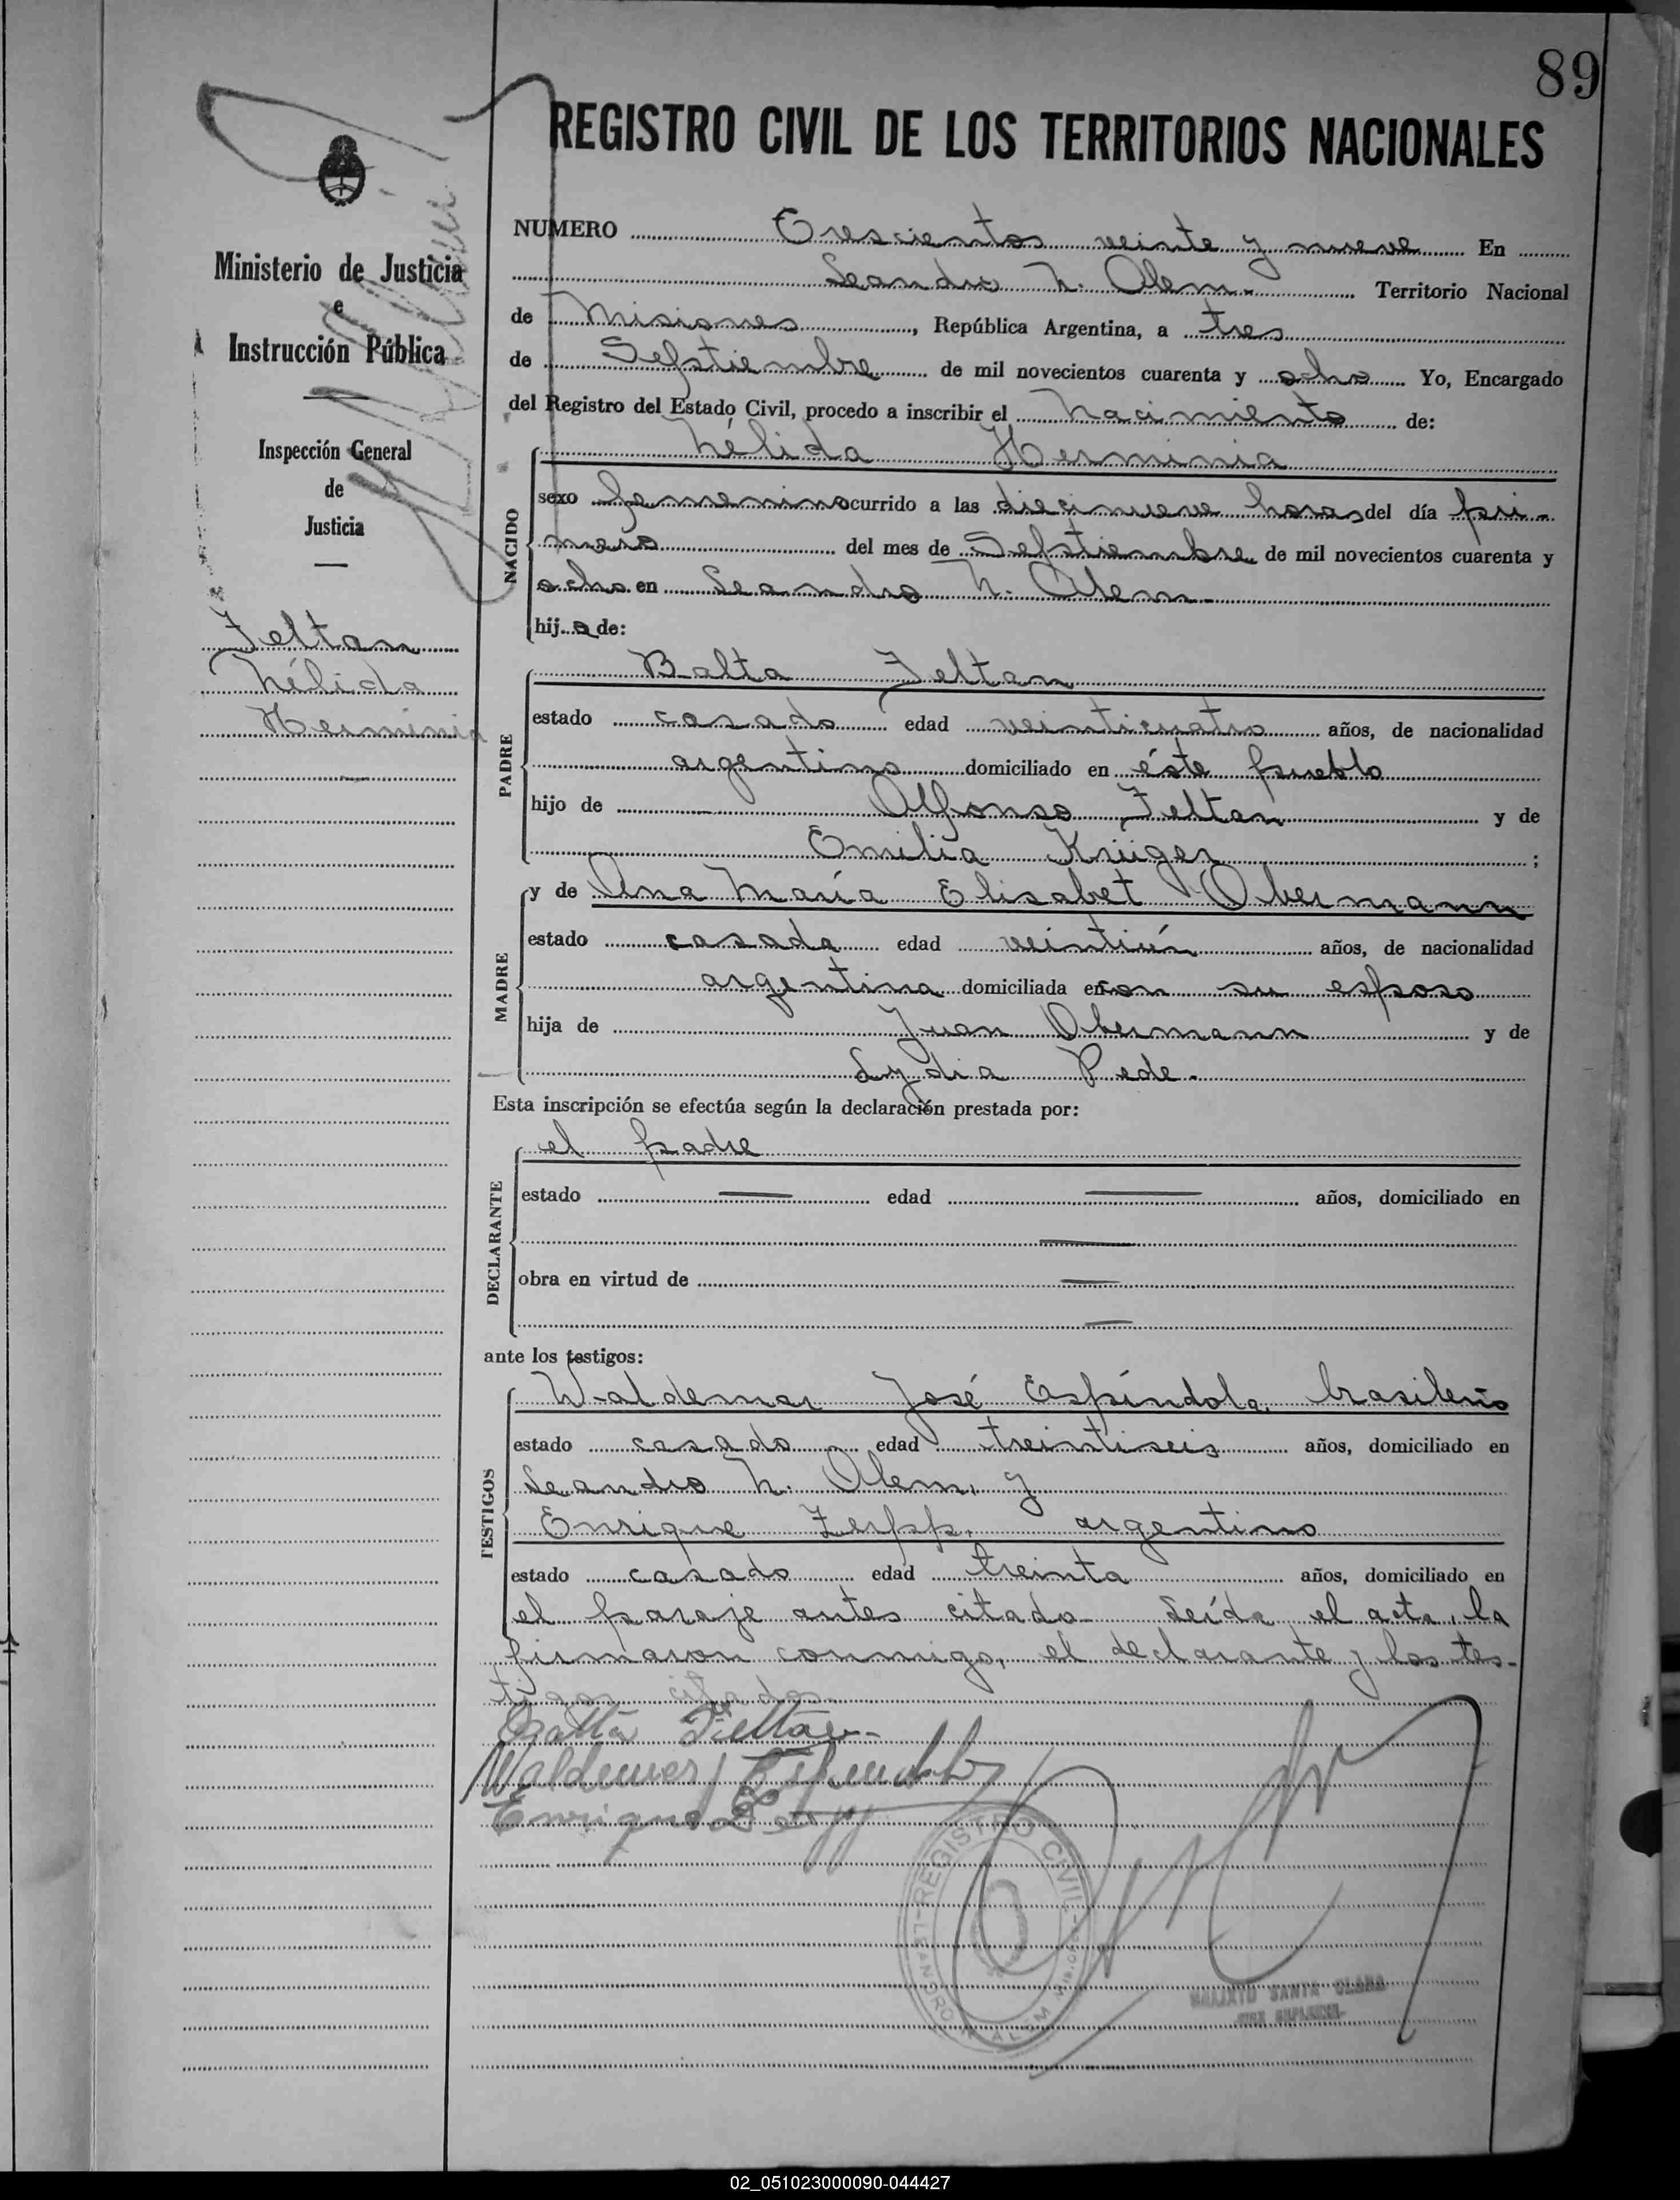 89
REGISTRO CIVIL DE LOS TERRITORIOS NACIONALES
Ministerio de Justicia
e
Instrucción Pública
Inspección General
de
Justicia
Feltan
Nélida
Herminia
NUMERO Trescientos veinte y nueve En
Leandro N. Alem. Territorio Nacional
de Misiones, República Argentina, a tres
de Septiembre de mil novecientos cuarenta y ocho Yo, Encargado
del Registro del Estado Civil, procedo a inscribir el Nacimiento de:
NACIDO
Nélida Herminia
sexo femenino ocurrido a las diecinueve horas del día pri-
mero del mes de Septiembre de mil novecientos cuarenta y
ocho en Leandro N. Alem.
hija de:
PADRE
Balta Feltan
estado casado edad veinticuatro años, de nacionalidad
argentino domiciliado en éste pueblo
hijo de Alfonso Feltan y de
Emilia Krüger ;
MADRE
y de Ana María Elisabet Obermann
estado casada edad veintiún años, de nacionalidad
argentina domiciliada en con su esposo
hija de Juan Obermann y de
Lydia Pede.
Esta inscripción se efectúa según la declaración prestada por:
DECLARANTE
el padre
estado — edad — años, domiciliado en
—
obra en virtud de —
—
ante los testigos:
TESTIGOS
Waldemar José Espíndola, brasileño
estado casado edad treintiseis años, domiciliado en
Leandro N. Alem, y
Enrique Zerpp, argentino
estado casado edad treinta años, domiciliado en
el paraje antes citado. Leída el acta, la
firmaron conmigo, el declarante y los tes-
tigos citados.
Balta Feltan
Waldemar J Espindola
Enrique Zerpp
REGISTRO CIVIL
LEANDRO N. ALEM
MISIONES
SANTA CLARA
02_051023000090-044427